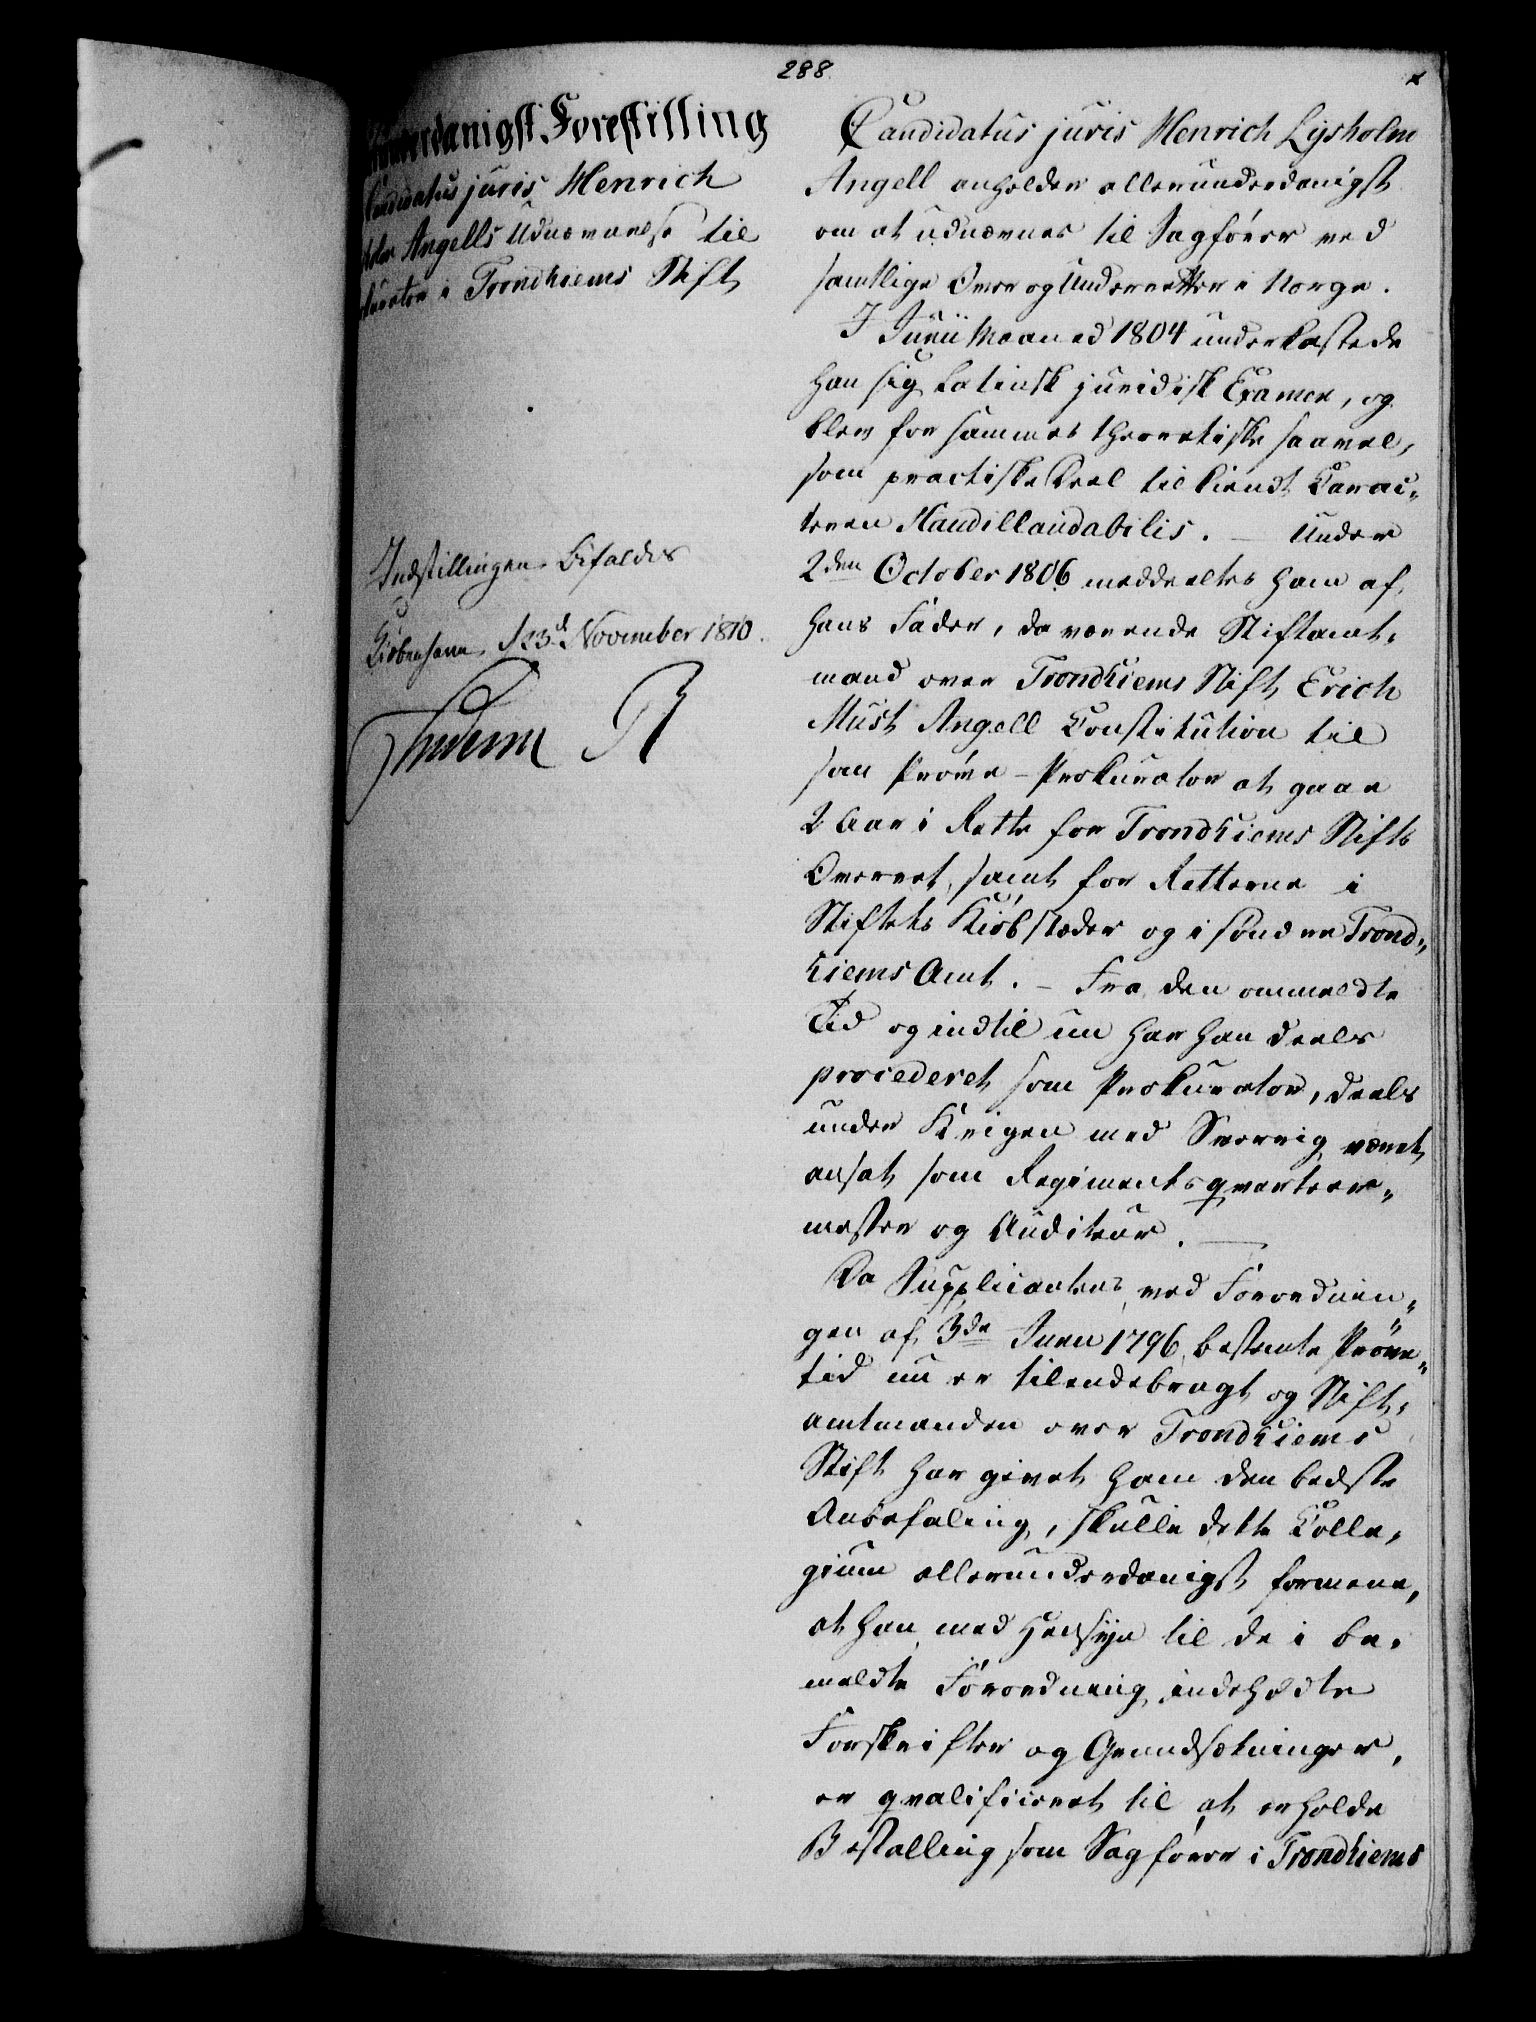 288.
underdanigst Forestilling
Candidatus juris Henrich
Angells Udnævnelse til
Procurator i Trondhiems Stift
Indstillingen bifaldes
Kiöbenhavn, d 23d November 1810.
Friderich R
Candidatus juris Henrich Lysholm
Angell anholder allerunderdanigst
om at udnævnes til Sagförer ved
samtlige Over og Underretter i Norge.
I Junii Maaned 1804 underkastede
han sig Latinsk juridisk Examen, og
blev for sammes theoretiske saavel,
som practiske Deel tilkiendt Carac„
teren Haudillaudabilis. – Under
2den October 1806 meddeeltes ham af
hans Fader, daværende Stiftamt„
mand over Trondhiems Stift Erich
Must Angell Constitution til
som Pröve-Prokurator at gaae
2 Aar i Rette for Trondhiems Stifts
Overret, samt for Retterne i
Stiftets Kiöbstæder og i söndre Trond„
hiems Amt. – Fra den ommeldte
Tid og indtil nu har han deels
procederet som Prokurator, deels
under Krigen med Sverrig været
ansat som Regimentsqvarteer„
mester og Auditeur. –
Da Supplicantens ved Forordnin„
gen af 3de Juni 1796 bestemte Pröve„
tid nu er tilendebragt og Stift„
amtmanden over Trondhiems
Stift har givet ham den bedste
Anbefaling, skulle dette Colle„
gium allerunderdanigst formene,
at han med Hensyn til de i be„
meldte Forordning indeholdte
Forskrifter og Grundsætninger,
er qvalificeret til at erholde
Bestalling som Sagförer i Trondhiems